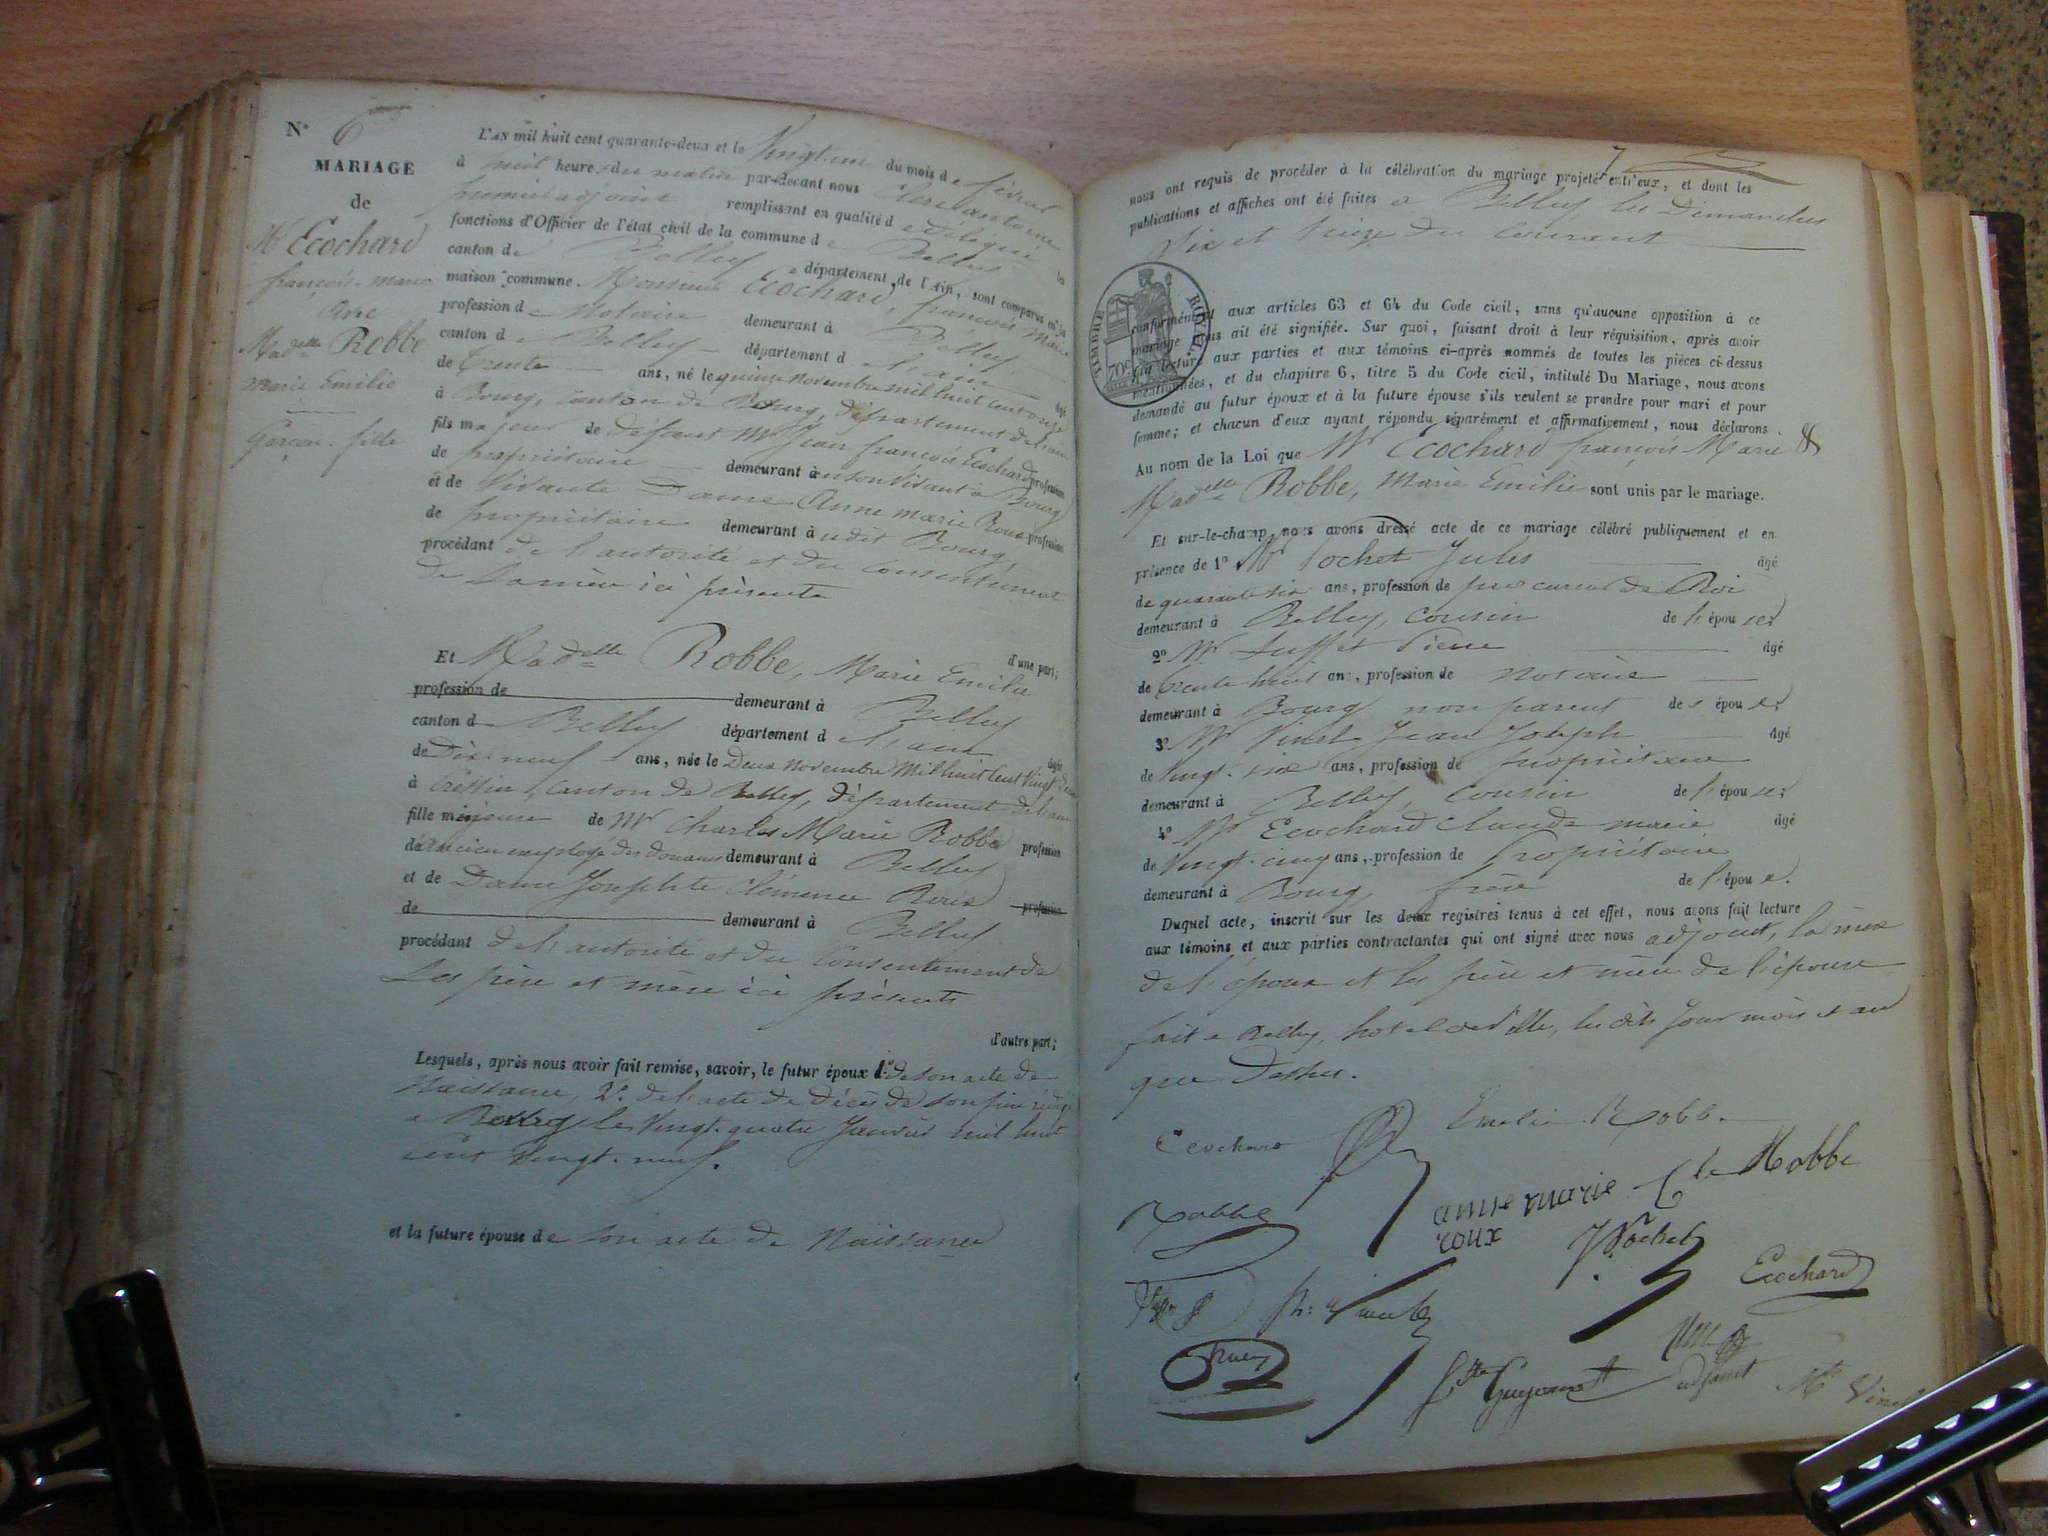 N° 6
MARIAGE
de
Mr Ecochard
françois-marie
avec
Madelle Robbe
marie Emilie
Garçon. fille
L'AN mil huit cent quarante-deux et le Vingt-un du mois de février
à huit heures du matin par-devant nous
premier adjoint remplissant en qualité de délégué les
fonctions d'Officier de l'état civil de la commune de Belley
canton de Belley département de l'Ain, sont comparus en la
maison commune. Monsieur Ecochard, françois Marie
profession de Notaire demeurant à Belley
canton de Belley département de l'ain âgé
de trente ans, né le quinze novembre mil huit cent onze
à Bourg, canton de Bourg, département de l'ain
fils majeur de défunt Mr Jean françois Ecochard profession
de propriétaire demeurant à en son vivant à Bourg
et de vivante Dame Anne marie Roux profession
de propriétaire demeurant à udit Bourg,
procédant de l'autorité et du consentement
de Sa mère ici présente
d'une part;
Et Madelle Robbe, Marie Emilie
profession de demeurant à Belley
canton de Belley département de l'ain âgée
de Dix-neuf ans, née le Deux novembre Mil huit Cent Vingt deux
à Cressin, canton de Belley, département de l'ain
fille mineure de Mr Charles Marie Robbe profession
d'ancien employé des douanes demeurant à Belley
et de Dame Josephte Clémence profession
de demeurant à Belley
procédant de l'autorité et du Consentement de
Ses père et mère ici présents
d'autre part;
Lesquels, après nous avoir fait remise, savoir, le futur époux 1° de son acte de
Naissance, 2° de l'acte de décès de son père
à Bourg le Vingt-quatre Janvier mil huit
cent Vingt-neuf.
et la future épouse de son acte de Naissance
7
nous ont requis de procéder à la célébration du mariage projeté entr'eux, et dont les
publications et affiches ont été faites à Belley les Dimanches
Six et treize du Courant
TIMBRE ROYAL
70c
conformément aux articles 63 et 64 du Code civil, sans qu'aucune opposition à ce
mariage nous ait été signifiée. Sur quoi, faisant droit à leur réquisition, après avoir
fait lecture aux parties et aux témoins ci-après nommés de toutes les pièces ci-dessus
mentionnées, et du chapitre 6, titre 5 du Code civil, intitulé Du Mariage, nous avons
demandé au futur époux et à la future épouse s'ils veulent se prendre pour mari et pour
femme; et chacun d'eux ayant répondu séparément et affirmativement, nous déclarons
Au nom de la Loi que Mr Ecochard françois Marie &
Madelle Robbe, Marie Emilie sont unis par le mariage.
Et sur-le-champ nous avons dressé acte de ce mariage célébré publiquement et en
présence de 1° Mr Pochet Jules âgé
de quarante six ans, profession de procureur du Roi
demeurant à Belley, cousin de l'épouse;
2° Mr Pierre âgé
de trente huit ans, profession de Notaire
demeurant à Bourg non parent des époux;
3° Mr Vinet Jean Joseph âgé
de Vingt-six ans, profession de propriétaire
demeurant à Belley, cousin de l'épouse;
4° Mr Ecochard Claude marie âgé
de Vingt-cinq ans, profession de Propriétaire
demeurant à Bourg, frère de l'époux.
Duquel acte, inscrit sur les deux registres tenus à cet effet, nous avons fait lecture
aux témoins et aux parties contractantes qui ont signé avec nous adjoint, la mère
de l'époux et les père et mère de l'épouse
fait à Belley, hotel de Ville, les dits Jour mois et an
que Dessus.
Ecochard Emélie Robbe
Robbe anne marie Cce Robbe
roux J Pochet Ecochard
adjoint